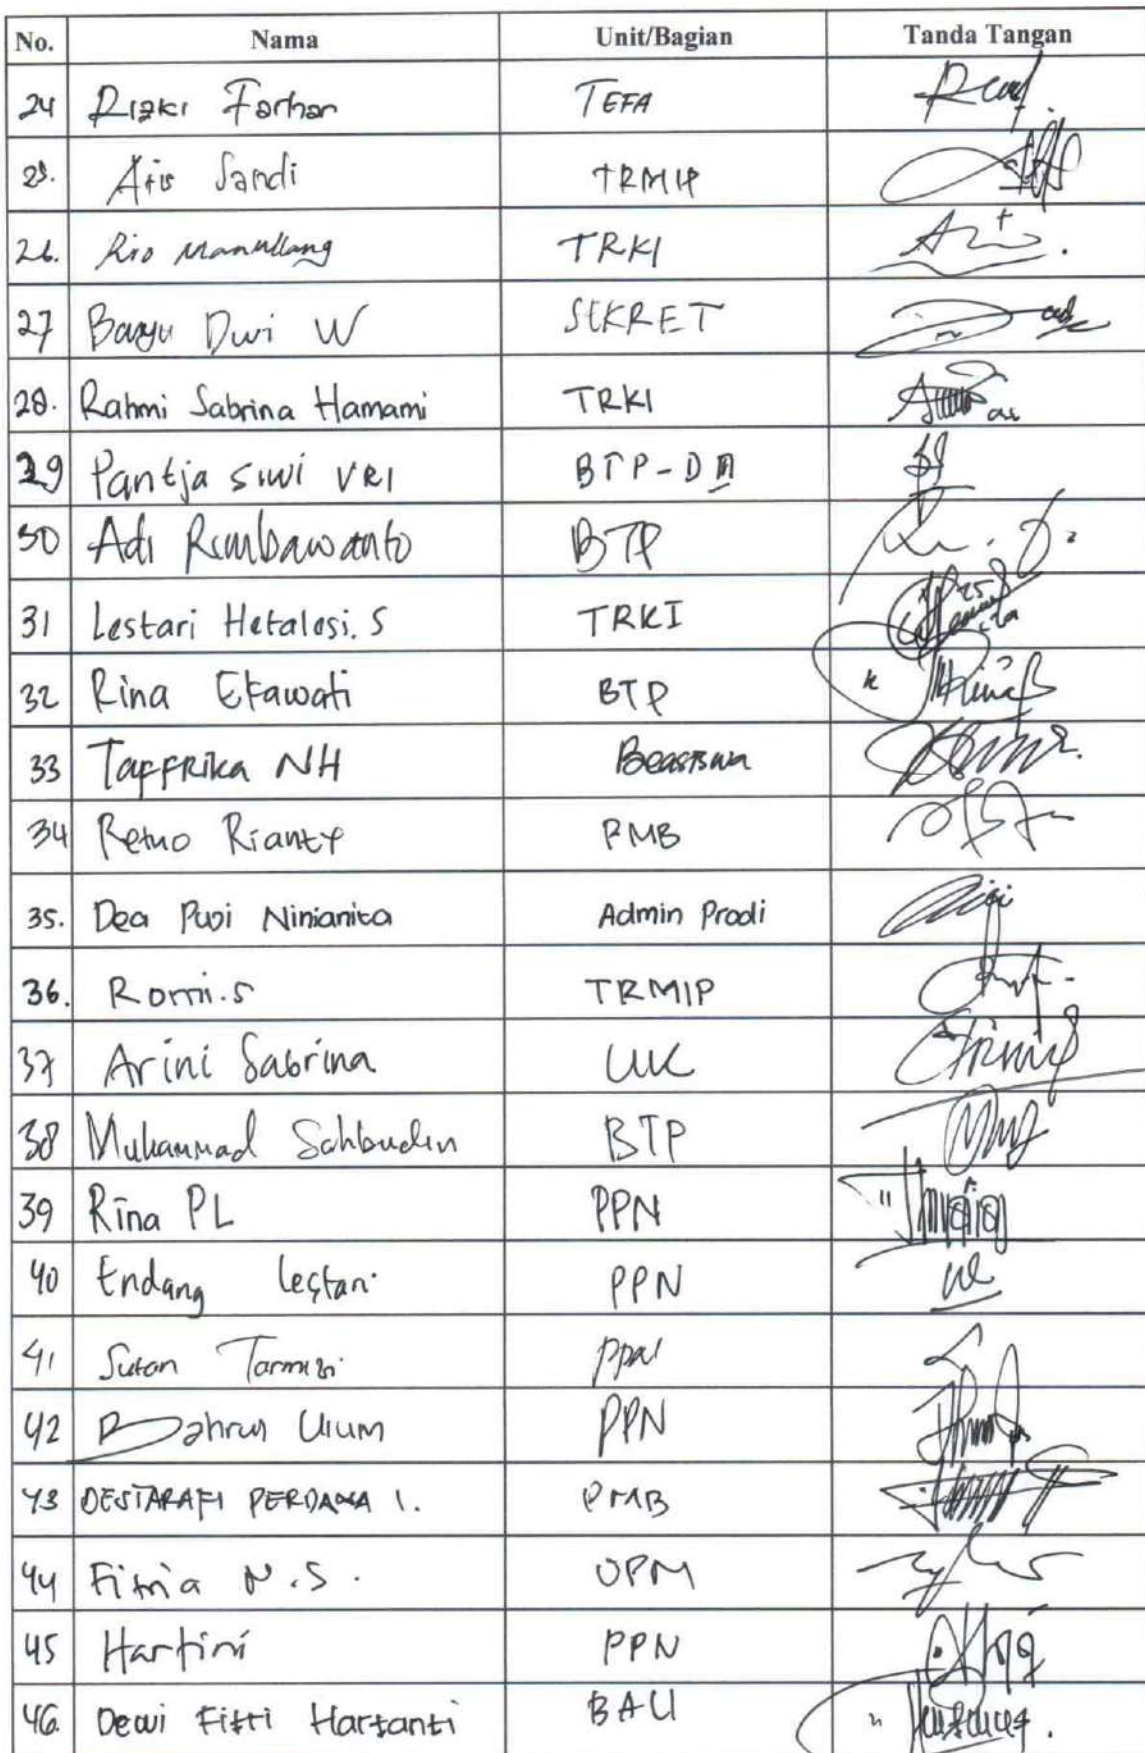 No. Nama Unit/Bagian Tanda Tangan
24 Rizki Farhan TEFA
25. Aris Sandi TRMIP
26. Rio Manullang TRKI
27 Bayu Dwi W SEKRET
28. Rahmi Sabrina Hamami TRKI
29 Pantja siwi VRI BTP-D III
30 Adi Rumbawanto BTP
31 Lestari Hetalesi. S TRKI
32 Rina Ekawati BTP
33 Taffrika NH Beasiswa
34 Retno Rianty PMB
35. Dea Puji Ninianita Admin Prodi
36. Romi.S TRMIP
37 Arini Sabrina UUK
38 Muhammad Sahbudin BTP
39 Rina PL PPN
40 Endang Lestari PPN
41 Sutan Tarmizi PPN
42 Bahrul Ulum PPN
43 DESTARAFI PERDANA I. PMB
44 Fitria N.S. UPM
45 Hartini PPN
46. Dewi Fitri Hartanti BAU